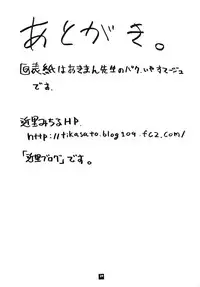 あとがき。
◎表紙はあきまん先生のパク…いやオマージュ
です。
近里みちるHP.
http://tikasato.blog109.fc2.com/
「近里ブログ」です。